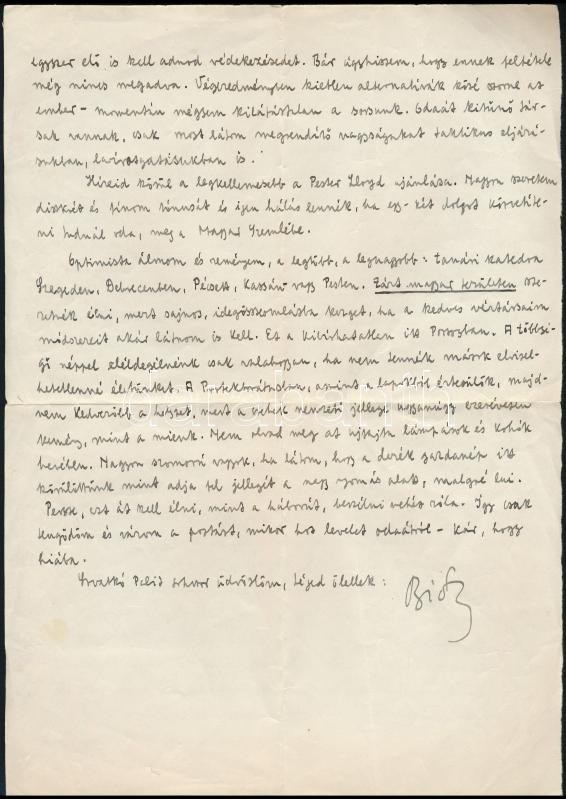 egyszer elő is kell adnod védekezésedet. Bár úgyhiszem, hogy ennek feltétele
még nincs megadva. Végeredményben kietlen alternatívák közé szorul az
ember – momentán mégsem kilátástalan a sorsunk. Odaát kitűnő tár-
sak vannak, csak most látom megrendítő nagyságukat taktikus eljárá-
sukban, lavírozgatásukban is.
Híreid közül a legkellemesebb a Pester Lloyd ajánlása. Nagyon szeretem
diszkrét és finom tónusát és igen hálás lennék, ha egy-két dolgot közvetíte-
ni tudnál oda, meg a Magyar Szemlébe.
Optimista álmom és reményem, a legtöbb, a legnagyobb: tanári katedra
Szegeden, Debrecenben, Pécsett, Kassán vagy Pesten. Zárt magyar területen sze-
retnék élni, mert sajnos, idegösszeomlásba kerget, ha a kedves vértársaim
módszereit akár látnom is kell. Ez a kibírhatatlan itt Pozsonyban. A többsé-
gi néppel eléldegélnénk csak valahogyan, ha nem tennék mások elvisel-
hetetlenné életünket. A Protektorátusban, amint a lapokból értesülök, majd-
nem kedvezőbb a helyzet, mert a csehek nemzeti jellege ugyanúgy ezerévesen
kemény, mint a mienk. Nem olvad meg az újfajta lámpások és kohók
hevében. Nagyon szomorú vagyok, ha látom, hogy a derék gazdanép itt
körülöttünk mint adja fel jellegét a nagy nyomás alatt, malgré lui.
Persze, ezt át kell élni, mint a háborút, beszélni nehéz róla. Így csak
tengődöm és várom a postást, mikor hoz levelet odaátról – kár, hogy
hiába.
Szvatkó Palit sokszor üdvözlöm, Téged ölellek:
darabanth